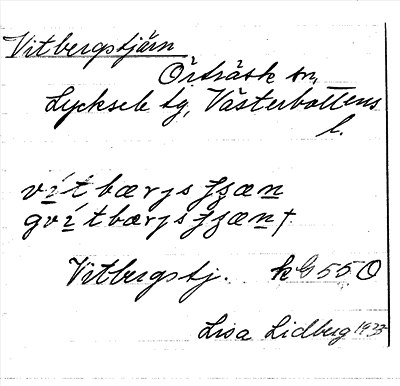 Vitbergstjärn
Örträsk sn,
Lycksele tg, Västerbottens
l.
vítbærjs
gvítbærjs
Vitbergstj. k G 55 O
Lisa Lidberg 1933